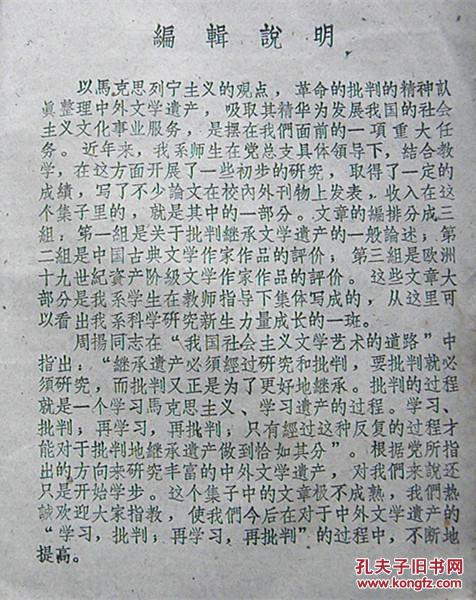 編輯說明
以馬克思列宁主义的观点，革命的批判的精神認
眞整理中外文学遺产，吸取其精华为发展我国的社会
主义文化事业服务，是摆在我們面前的一項重大任
务。近年来，我系师生在党总支具体領导下，結合教
学，在这方面开展了一些初步的研究，取得了一定的
成績，写了不少論文在校內外刊物上发表，收入在这
个集子里的，就是其中的一部分。文章的編排分成三
組；第一組是关于批判継承文学遺产的一般論述；第
二組是中国古典文学作家作品的評价；第三組是欧洲
十九世紀資产阶級文学作家作品的評价。这些文章大
部分是我系学生在教师指导下集体写成的，从这里可
以看出我系科学研究新生力量成长的一班。
周揚同志在“我国社会主义文学艺术的道路”中
指出：“継承遺产必須經过研究和批判，要批判就必
須研究，而批判又正是为了更好地継承。批判的过程
就是一个学习馬克思主义、学习遺产的过程。学习、
批判；再学习，再批判；只有經过这种反复的过程才
能对于批判地継承遺产做到恰如其分”。根据党所指
出的方向来研究丰富的中外文学遺产，对我們来說还
只是开始学步。这个集子中的文章极不成熟，我們热
誠欢迎大家指教，使我們今后在对于中外文学遺产的
“学习，批判；再学习，再批判”的过程中，不断地
提高。
孔夫子旧书网
www.kongfz.com